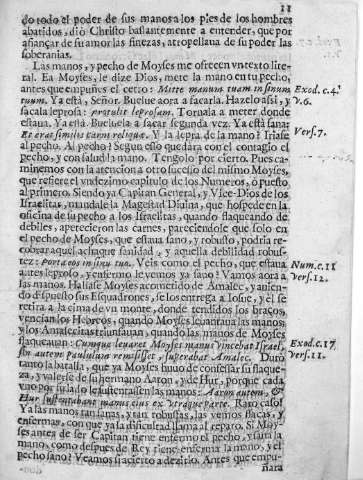 11
do todo el poder de sus manos a los pies de los hombres
abatidos, diò Christo bastantemente a entender, que por
afiançar de su amor las finezas, atropellaua de su poder las
soberanias.
Las manos, y pecho de Moyses me ofrecen vn texto lite-
ral. Ea Moyses, le dize Dios, mete la mano en tu pecho,
antes que empuñes el cetro: Mitte manum tuam in sinum
tuum. Ya està, Señor. Buelue aora a sacarla. Hazelo assi, y
sacala leprosa: protulit leprosam. Tornala a meter donde
estaua. Ya està. Bueluela a sacar segunda vez. Ya està sana:
Et erat similis carni reliquæ. Y la lepra de la mano? Iriase
al pecho. Al pecho? Segun esso quedarà con el contagio el
pecho, y con salud la mano. Tengolo por cierto. Pues ca-
minemos con la atencion a otro sucesso del mismo Moyses,
que refiere el vndezimo capitulo de los Numeros, ò puesto
al primero. Siendo ya Capitan General, y Vice-Dios de los
Israelitas, mandale la Magestad Diuina, que hospede en la
oficina de su pecho a los Israelitas, quando flaqueando de
debiles, aparecieron las carnes, pareciendole que solo en
el pecho de Moyses, que estaua sano, y robusto, podria re-
cobrar aquel achaque sanidad, y aquella debilidad robus-
tez: Porta eos in sinu tuo. Veis como el pecho, que estaua
antes leproso, y enfermo le vemos ya sano? Vamos aora a
las manos. Hallase Moyses acometido de Amalec, y auien-
do dispuesto sus Esquadrones, se los entrega a Iosue, y èl se
retira a la cima de vn monte, donde tendidos los braços,
vencian los Hebreos, quando Moyses leuantaua las manos,
y los Amalecitas triunfauan, quando las manos de Moyses
flaqueauan: Cumque leuaret Moyses manus vincebat Israel,
sin autem paululum remisisset, superabat Amalec. Durò
tanto la batalla, que ya Moyses huuo de confessar su flaque-
za, y valerse de su hermano Aaron, y de Hur, porque cada
vno por su lado le sustentassen las manos: Aaron autem, &
Hur sustentabant manus eius ex vtraque parte. Raro caso!
Ya las manos tan sanas, y tan robustas, las vemos flacas, y
enfermas, con que ya la dificultad llama al reparo. Si Moy-
ses antes de ser Capitan tiene enfermo el pecho, y sana la
mano, como despues de Rey tiene enferma la mano, y el
pecho sano? Veamos si acierto a dezirlo. Antes que empu-
ñara
Exod. c.4.
v.6.
Vers.7.
Num. c.11
vers.12.
Exod. c.17
vers.11.